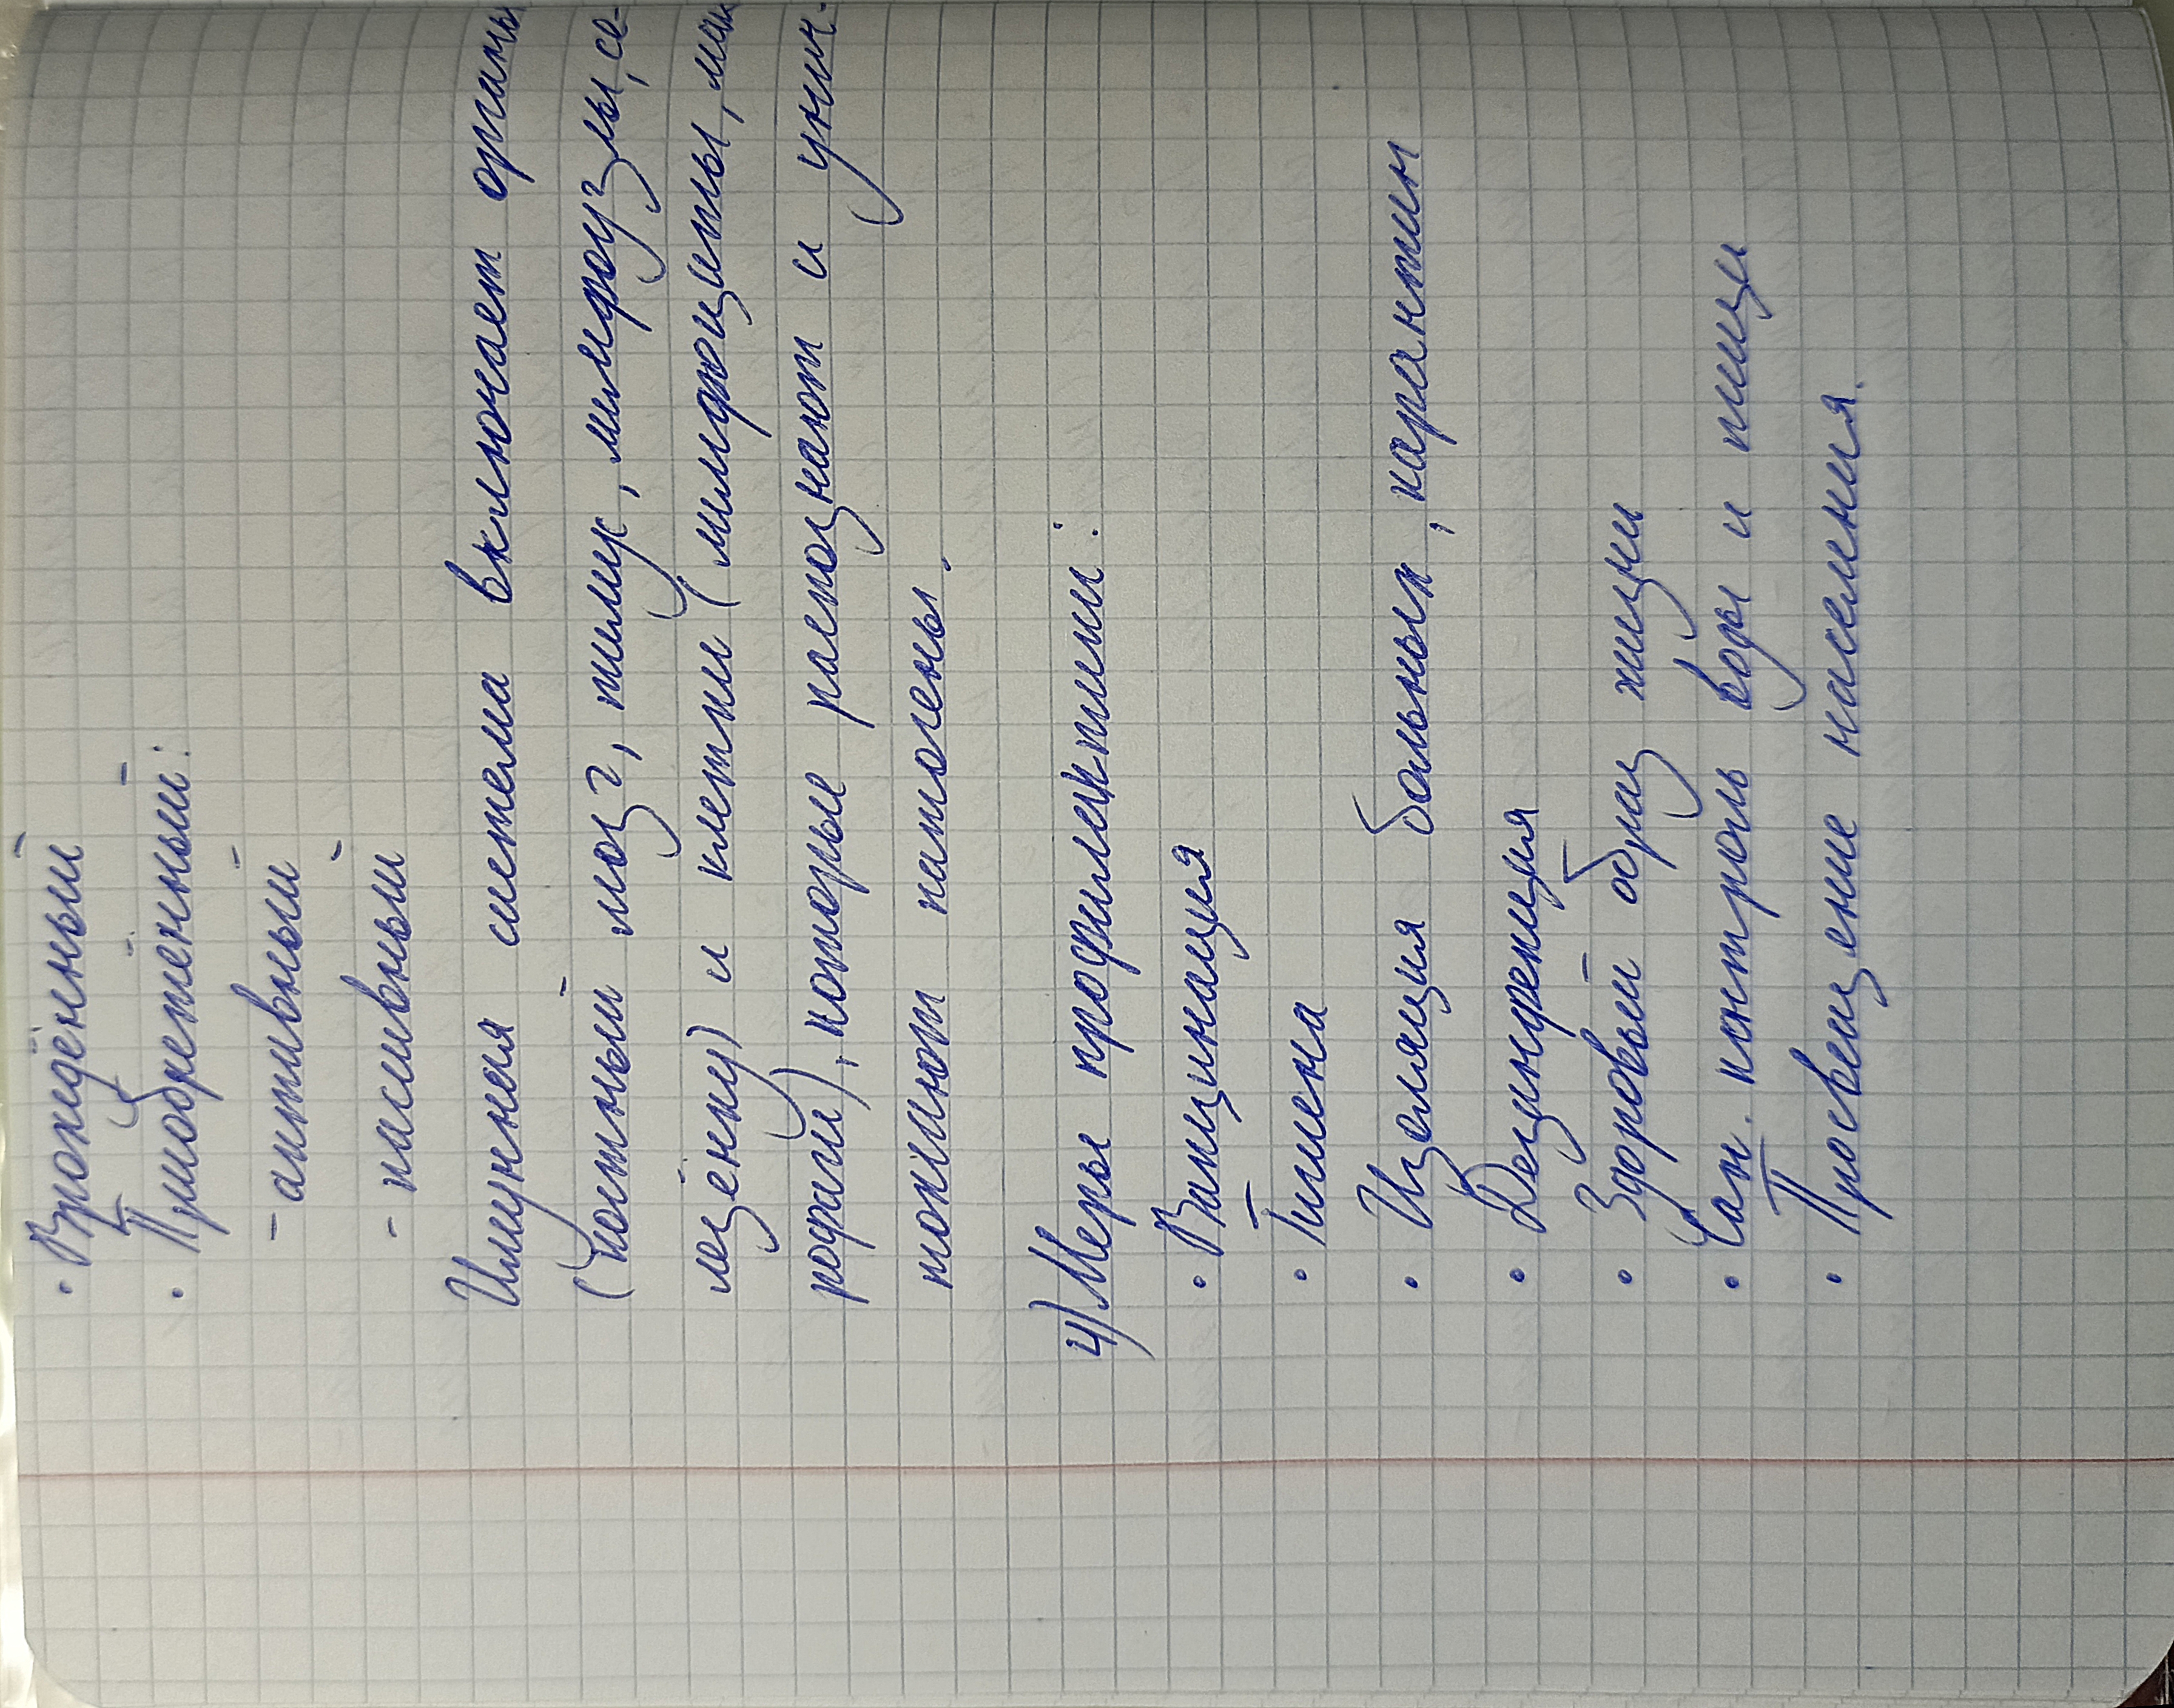 · Врождённый
· Приобретенный:
- активный
- пасивный
Имунная система включает органы
(костный мозг, тимус, лимфоузлы, се-
лезёнку) и клетки (лимфоциты, мак
рофаги), которые распознают и унич-
тожают патогены.
4) Меры профилактики:
· Вакцинация
· Гигиена
· Изоляция больных, карантин
· Дезинфекция
· Здоровый образ жизни
· Сан. контроль воды и пищи
· Просвещение населения.